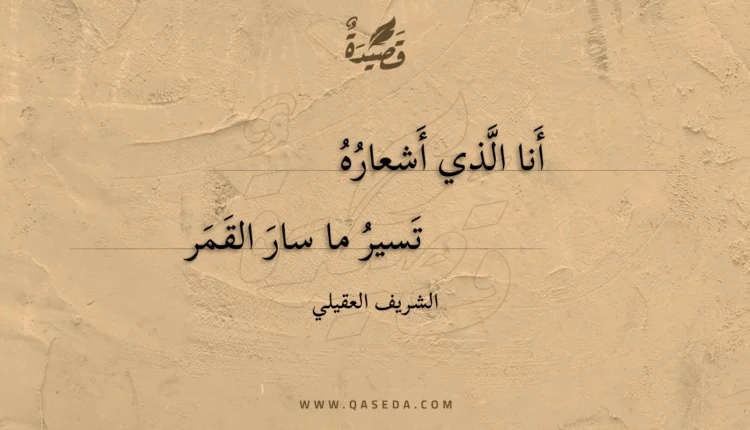 قَصِيْدَةٌ
أَنا الَّذي أَشعارُهُ
تَسيرُ ما سارَ القَمَر
الشريف العقيلي
WWW.QASEDA.COM